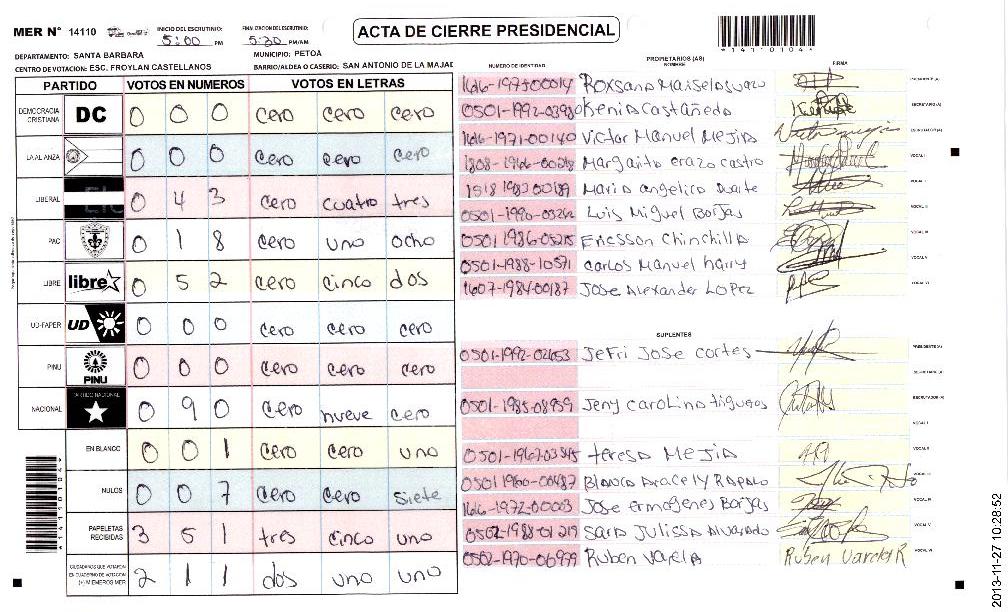 MER N° 14110
INICIO DEL ESCRUTINIO: 5:00 PM
FINALIZACION DEL ESCRUTINIO: 5:30 PM/AM
ACTA DE CIERRE PRESIDENCIAL
*14110104*
DEPARTAMENTO: SANTA BARBARA
MUNICIPIO: PETOA
CENTRO DE VOTACION: ESC. FROYLAN CASTELLANOS
BARRIO/ALDEA O CASERIO: SAN ANTONIO DE LA MAJAD
PARTIDO VOTOS EN NUMEROS VOTOS EN LETRAS
DEMOCRACIA CRISTIANA DC 0 0 0 cero cero cero
LA ALIANZA 0 0 0 cero cero cero
LIBERAL 0 4 3 cero cuatro tres
PAC 0 1 8 cero uno ocho
LIBRE libre 0 5 2 cero cinco dos
UD-FAPER UD 0 0 0 cero cero cero
PINU PINU 0 0 0 cero cero cero
NACIONAL PARTIDO NACIONAL 0 9 0 cero nueve cero
EN BLANCO 0 0 1 cero cero uno
NULOS 0 0 7 cero cero siete
PAPELETAS RECIBIDAS 3 5 1 tres cinco uno
CIUDADANOS QUE VOTARON EN CUADERNO DE VOTACION (+) MIEMBROS MER 2 1 1 dos uno uno
PROPIETARIOS (AS)
NUMERO DE IDENTIDAD NOMBRE FIRMA
Roxsana PRESIDENTE (A)
Kenia Castañeda SECRETARIO (A)
1616-1971-00140 Victor Manuel Mejia ESCRUTADOR (A)
Margarito erazo castro VOCAL I
Maria angelica Duarte
Luis Miguel Borjas
0501-1986-05215 Ericsson Chinchilla
0501-1988-10571 carlos Manuel harry VOCAL V
1607-1984-00187 Jose Alexander Lopez VOCAL VI
SUPLENTES
Jefri Jose cortes PRESIDENTE (A)
SECRETARIO (A)
0501-1985-08959 Jeny carolina figueroa ESCRUTADOR (A)
VOCAL I
teresa Mejia VOCAL II
Blanca Aracely VOCAL III
1616-1972-00003 Jose ermogenes Borjas VOCAL IV
0502-1988-01219 Sara Julissa Alvarado VOCAL V
0502-1970-00999 Ruben varela Ruben Varela R VOCAL VI
*14110104*
2013-11-27 10:28:52